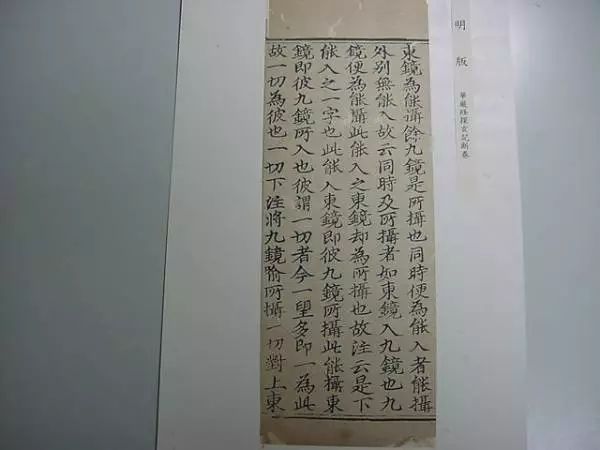 明版
華嚴經探玄記斷卷
東鏡為能攝餘九鏡是所攝也同時便為能入者能攝
外別無能入故云同時及所攝者如東鏡入九鏡也九
鏡便為能攝此能入之東鏡却為所攝也故注云是下
能入之一字也此能入東鏡即彼九鏡所攝此能攝東
鏡即彼九鏡所入也彼謂一切者今一望多即一為此
故一切為彼也一切下注將九鏡喻所攝一切對上東